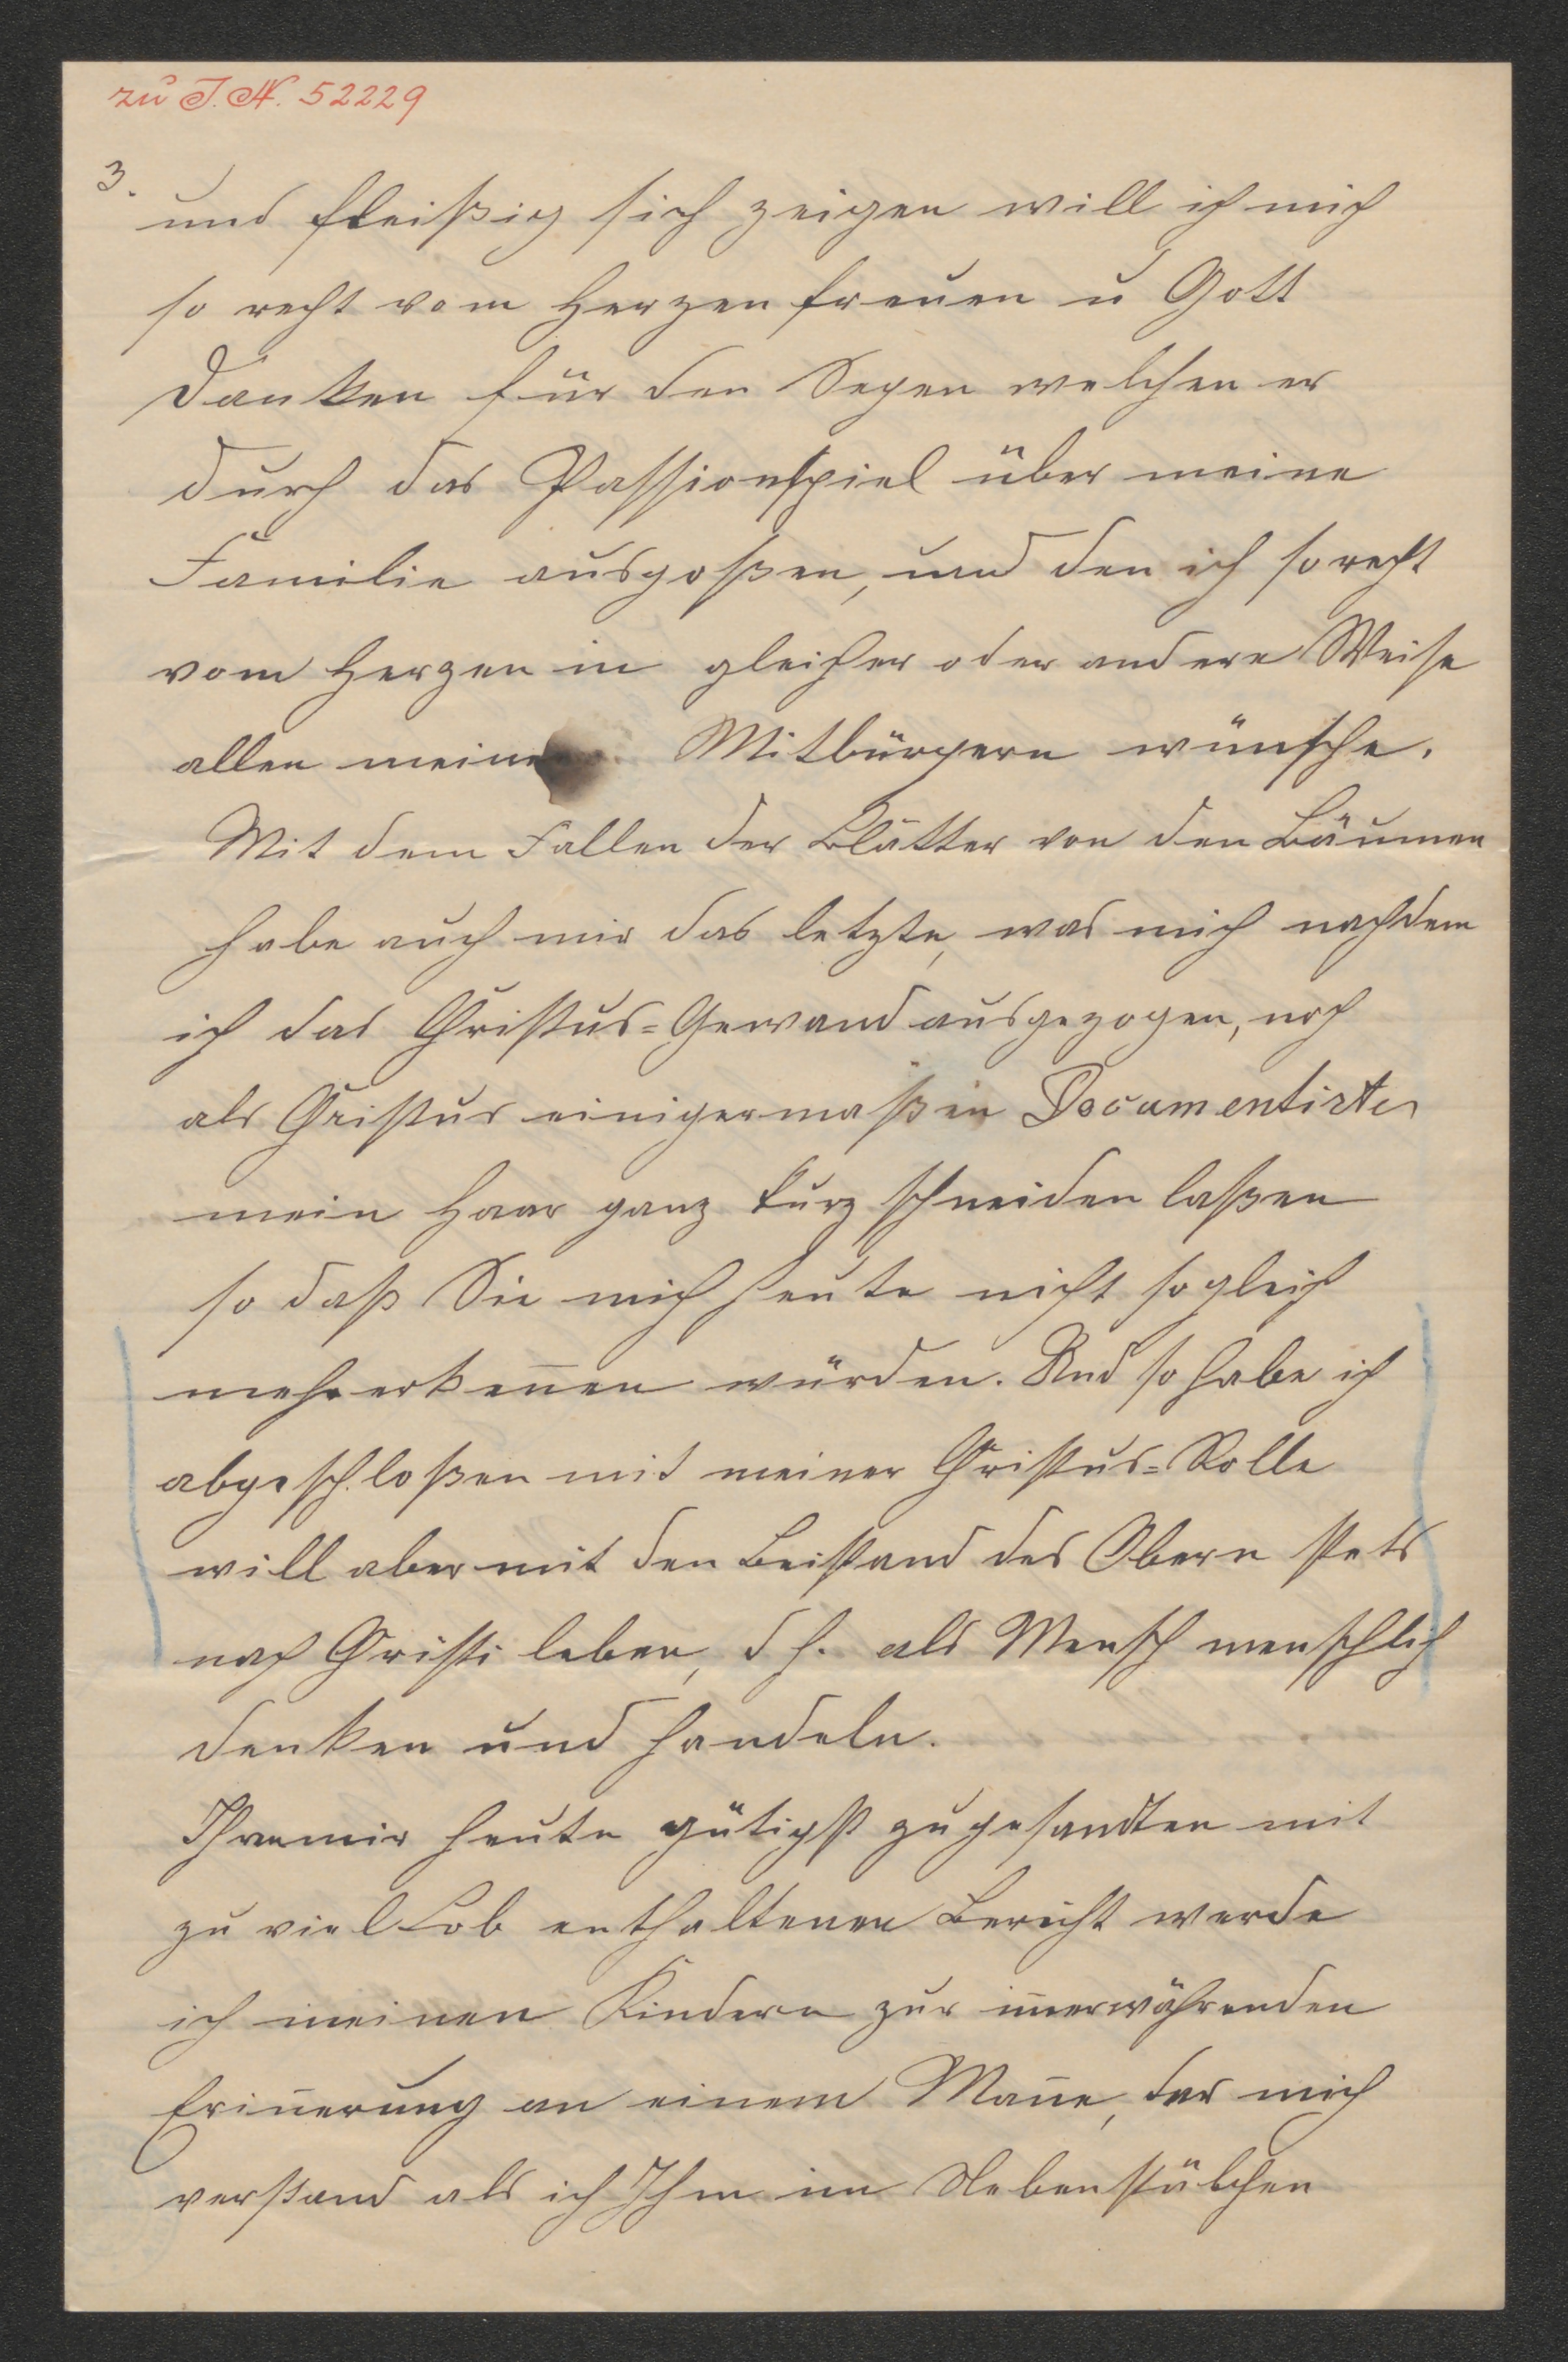 zu I.N. 52229
3.
und fleißig sich zeigen will ich mich
so recht vom Herzen freuen u Gott
danken für den Segen welchen er
durch das Passionspiel über meine
Familie ausgoßen, und den ich so recht
vom Herzen in gleicher oder andere Weise
allen meinen Mitbürgern wünsche.
Mit dem Fallen der Blätter von den Bäumen
habe auch mir das letzte, was mich nachdem
ich das Christus=Gewand ausgezogen, noch
als Christus einigermaßen Documentirte,
mein Haar ganz kurz schneiden laßen
so daß Sie mich heute nicht sogleich
mehr erkeñen würden. Und so habe ich
abgeschloßen mit meiner Christus=Rolle
will aber mit den Beistand des Obern stets
nach Christi leben, d h. als Mensch menschlich
denken und handeln.
Ihren mir heute gütigst zugesandten mit
zu viel Lob enthaltenen Bericht werde
ich meinen Kindern zur im̃erwährenden
Eriñerung an einem Mañe, der mich
verstand als ich Ihm im Nebenstübchen